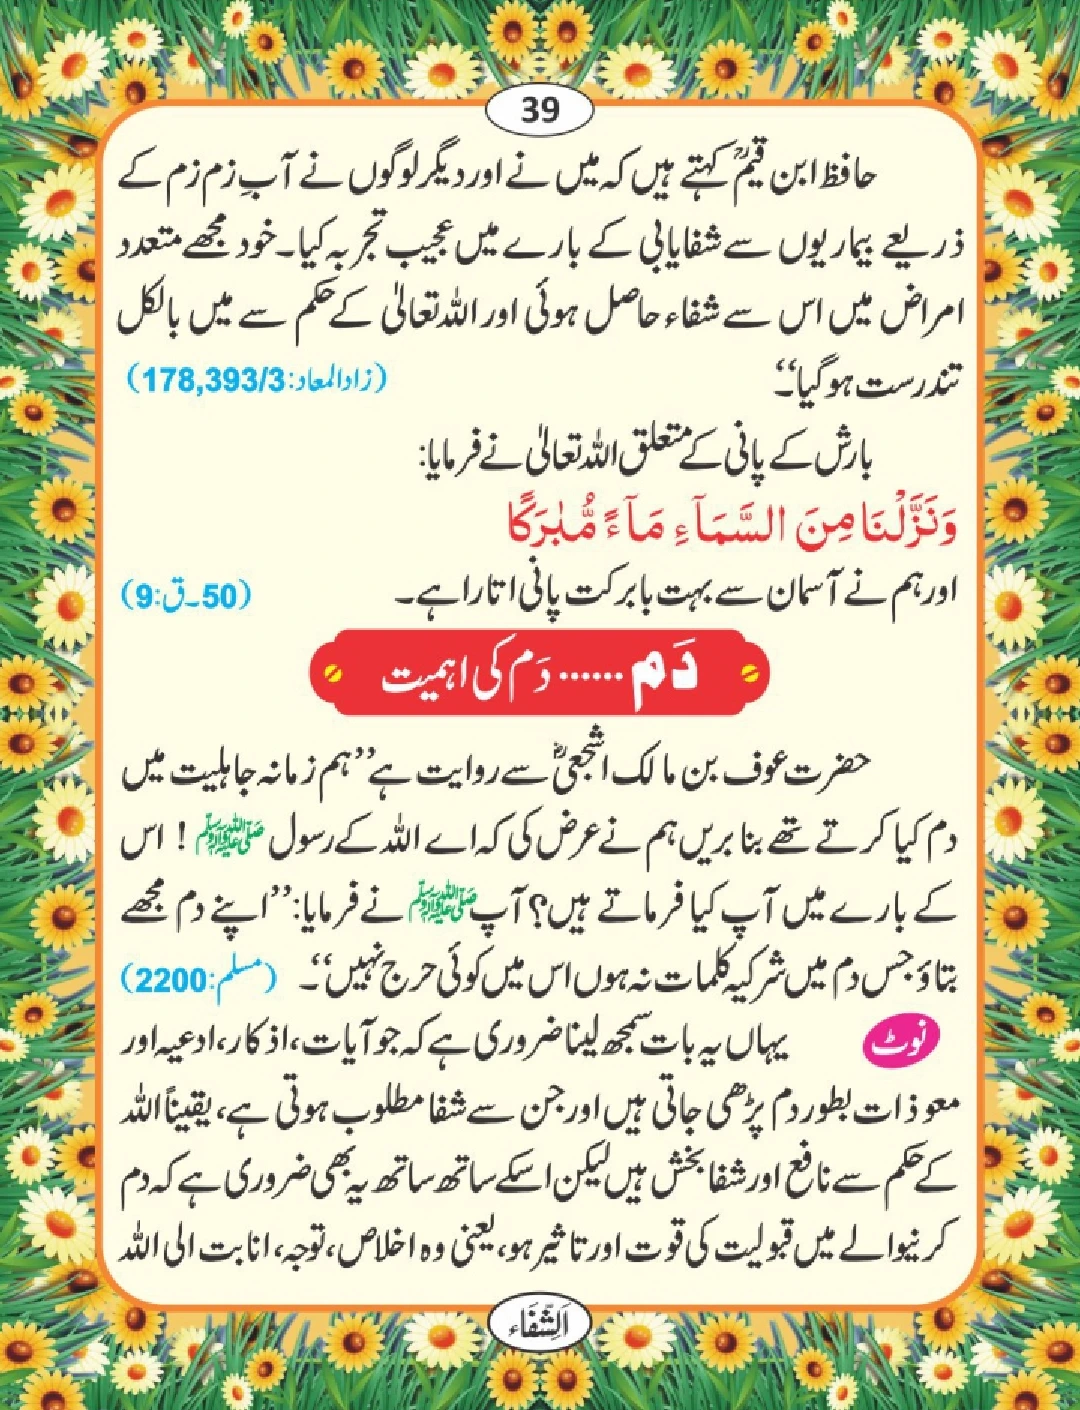 39
حافظ ابن قیمؒ کہتے ہیں کہ میں نے اور دیگر لوگوں نے آبِ زم زم کے
ذریعے بیماریوں سے شفایابی کے بارے میں عجیب تجربہ کیا۔ خود مجھے متعدد
امراض میں اس سے شفاء حاصل ہوئی اور اللہ تعالیٰ کے حکم سے میں بالکل
تندرست ہو گیا‘‘۔ (زادالمعاد:178,393/3)
بارش کے پانی کے متعلق اللہ تعالیٰ نے فرمایا:
وَنَزَّلْنَا مِنَ السَّمَآءِ مَآءً مُّبٰرَكًا
اور ہم نے آسمان سے بہت بابرکت پانی اتارا ہے۔ (50۔ق:9)
دَم...... دَم کی اہمیت
حضرت عوف بن مالک اشجعیؓ سے روایت ہے’’ہم زمانہ جاہلیت میں
دم کیا کرتے تھے بنا بریں ہم نے عرض کی کہ اے اللہ کے رسول ﷺ ! اس
کے بارے میں آپ کیا فرماتے ہیں؟ آپ ﷺ نے فرمایا:’’اپنے دم مجھے
بتاؤ جس دم میں شرکیہ کلمات نہ ہوں اس میں کوئی حرج نہیں‘‘۔ (مسلم:2200)
نوٹ یہاں یہ بات سمجھ لینا ضروری ہے کہ جو آیات، اذکار، ادعیہ اور
معوذات بطور دم پڑھی جاتی ہیں اور جن سے شفا مطلوب ہوتی ہے، یقیناً اللہ
کے حکم سے نافع اور شفا بخش ہیں لیکن اسکے ساتھ ساتھ یہ بھی ضروری ہے کہ دم
کرنیوالے میں قبولیت کی قوت اور تاثیر ہو، یعنی وہ اخلاص، توجہ، انابت الی اللہ
اَلشِّفَاء